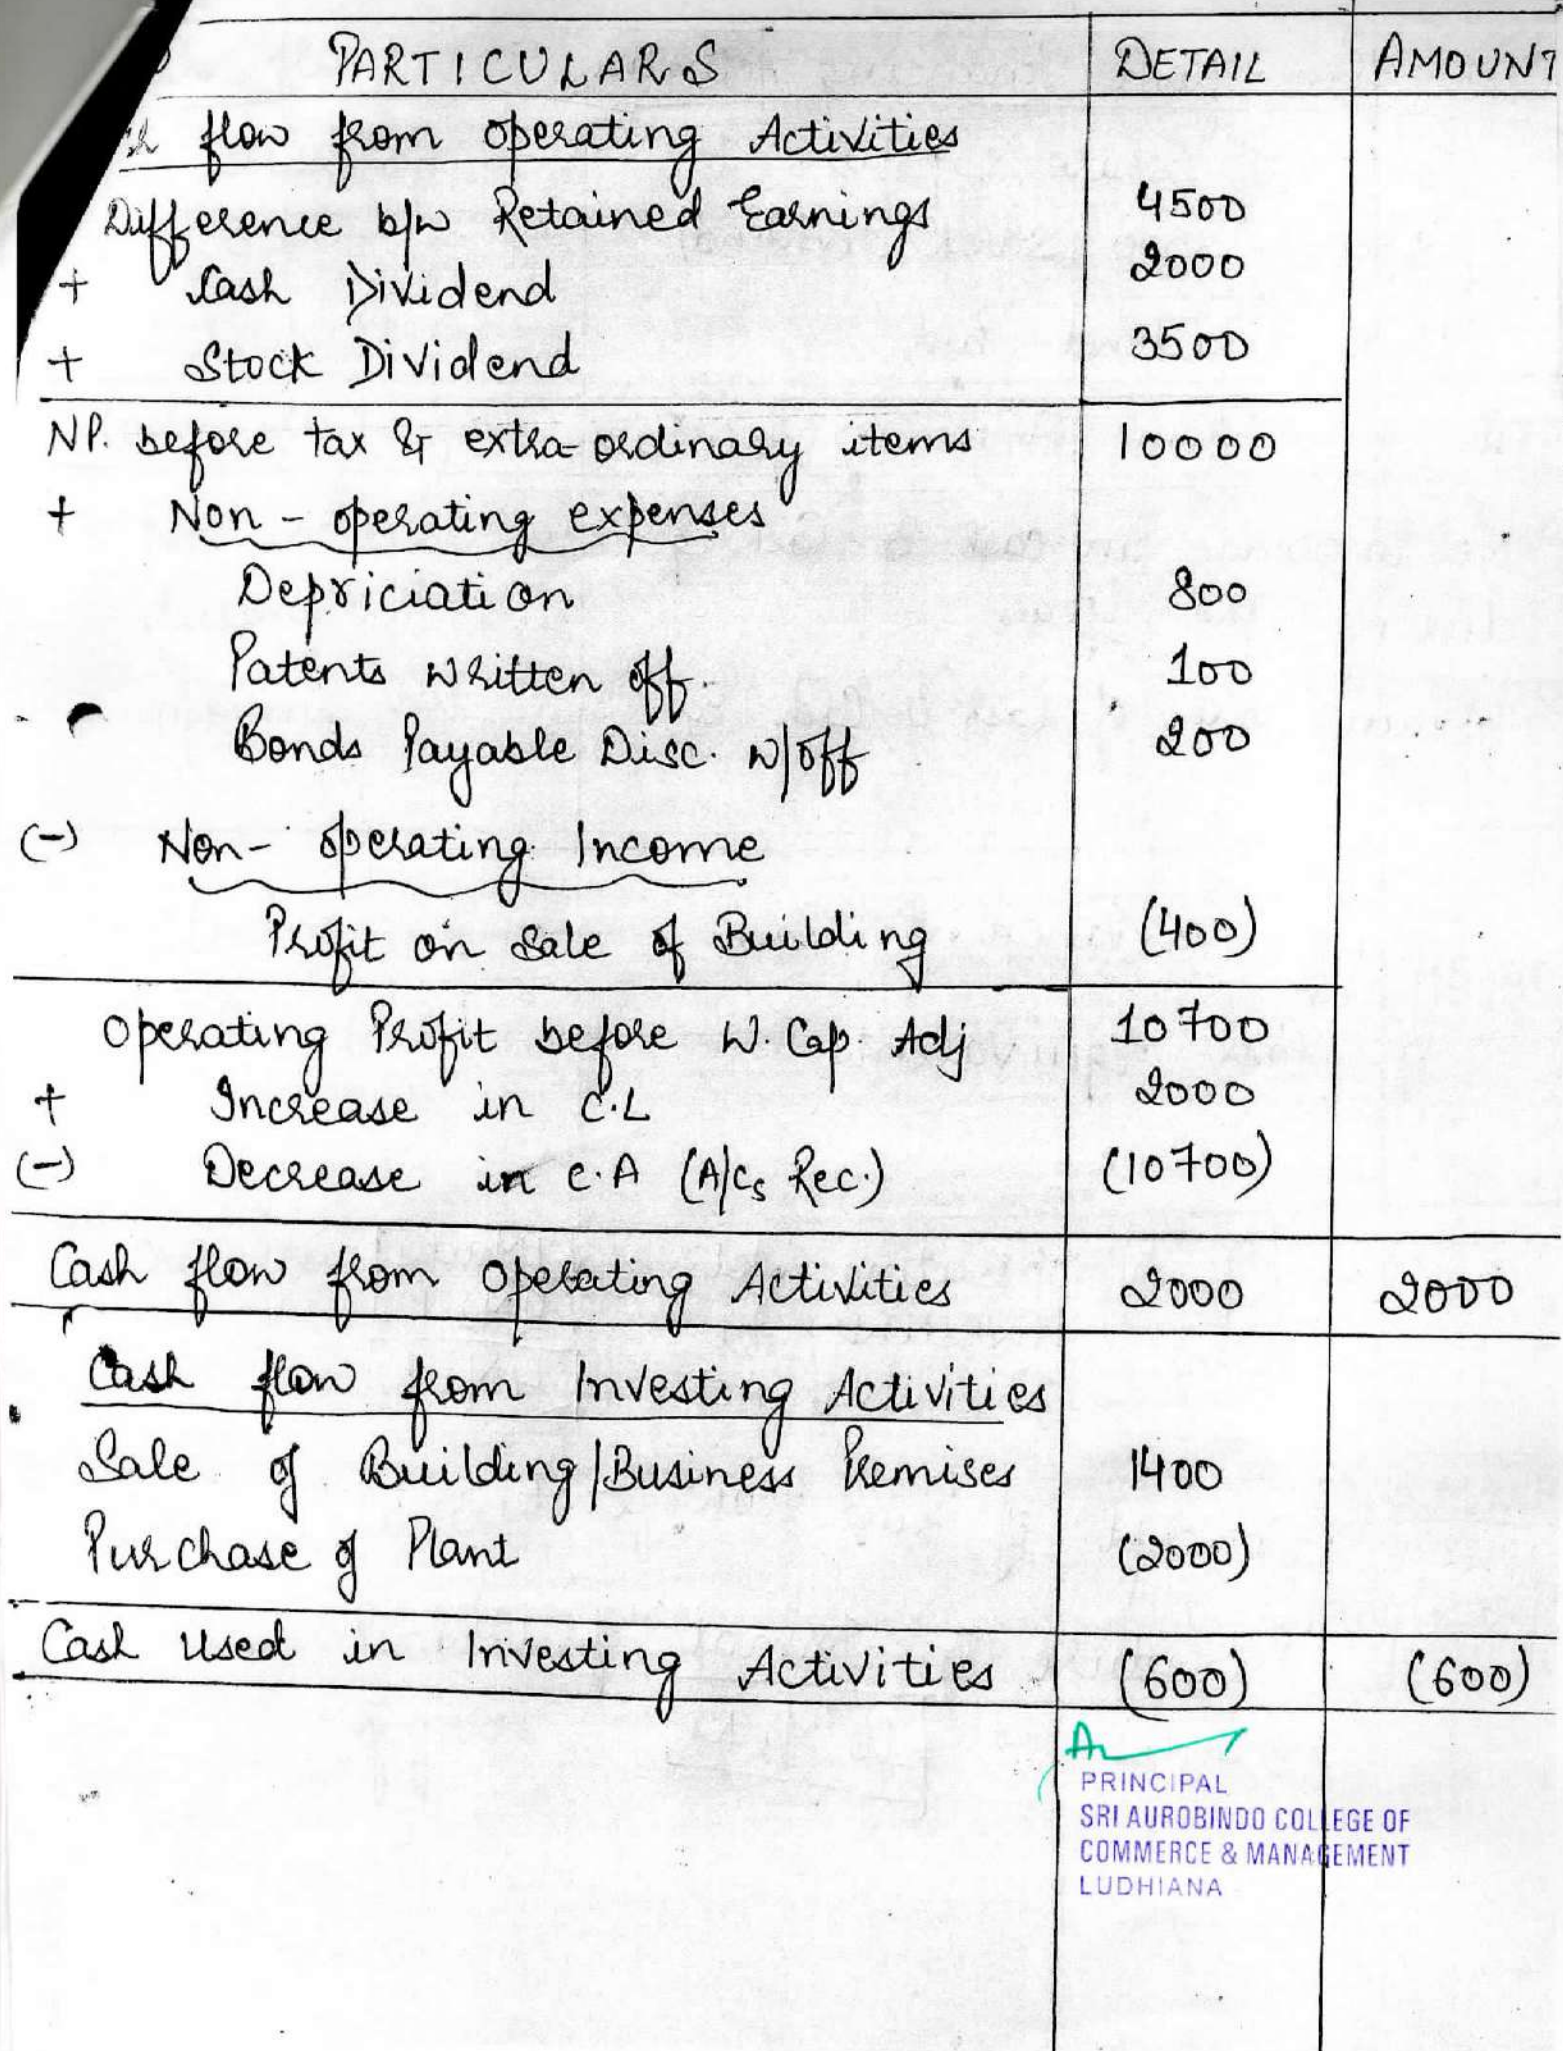 PARTICULARS DETAIL AMOUNT
flow from operating Activities
Difference b/w Retained Earnings 4500
+ Cash Dividend 2000
+ Stock Dividend 3500
NP. before tax & extra-ordinary items 10000
+ Non-operating expenses
Depriciation 800
Patents written off. 100
Bonds Payable Disc. w/off 200
(-) Non-operating Income
Profit on Sale of Building (400)
Operating Profit before W. Cap. Adj 10700
+ Increase in C.L 2000
(-) Decrease in C.A (A/cs Rec.) (10700)
Cash flow from Operating Activities 2000 2000
Cash flow from Investing Activities
Sale of Building/Business Premises 1400
Purchase of Plant (2000)
Cash used in Investing Activities (600) (600)
PRINCIPAL
SRI AUROBINDO COLLEGE OF
COMMERCE & MANAGEMENT
LUDHIANA